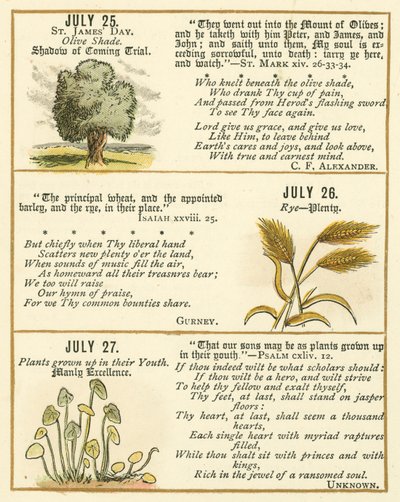 JULY 25.
St. James' Day.
Olive Shade.
Shadow of Coming Trial.
"They went out into the Mount of Olives;
and he taketh with him Peter, and James, and
John; and saith unto them, My soul is ex-
ceeding sorrowful, unto death: tarry ye here,
and watch."—St. Mark xiv. 26-33-34.
* * * * * *
Who knelt beneath the olive shade,
Who drank Thy cup of pain,
And passed from Herod's flashing sword,
To see Thy face again.
Lord give us grace, and give us love,
Like Him, to leave behind
Earth's cares and joys, and look above,
With true and earnest mind.
C. F. Alexander.
"The principal wheat, and the appointed
barley, and the rye, in their place."
Isaiah xxviii. 25.
* * * * * *
But chiefly when Thy liberal hand
Scatters new plenty o'er the land,
When sounds of music fill the air,
As homeward all their treasnres bear;
We too will raise
Our hymn of praise,
For we Thy common bounties share.
Gurney.
JULY 26.
Rye—Plenty.
JULY 27.
Plants grown up in their Youth.
Manly Excellence.
"That our sons may be as plants grown up
in their youth."—Psalm cxliv. 12.
If thou indeed wilt be what scholars should:
If thou wilt be a hero, and wilt strive
To help thy fellow and exalt thyself,
Thy feet, at last, shall stand on jasper
floors:
Thy heart, at last, shall seem a thousand
hearts,
Each single heart with myriad raptures
filled,
While thou shalt sit with princes and with
kings,
Rich in the jewel of a ransomed soul.
Unknown.